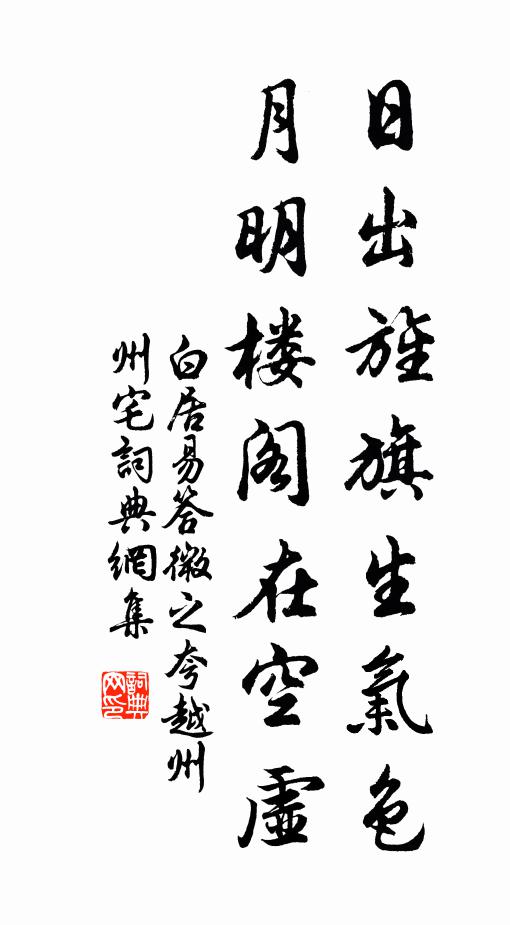 日出旌旗生氣色
月明楼阁在空虛
白居易答微之夸越州
州宅詞典網集
詞典網印